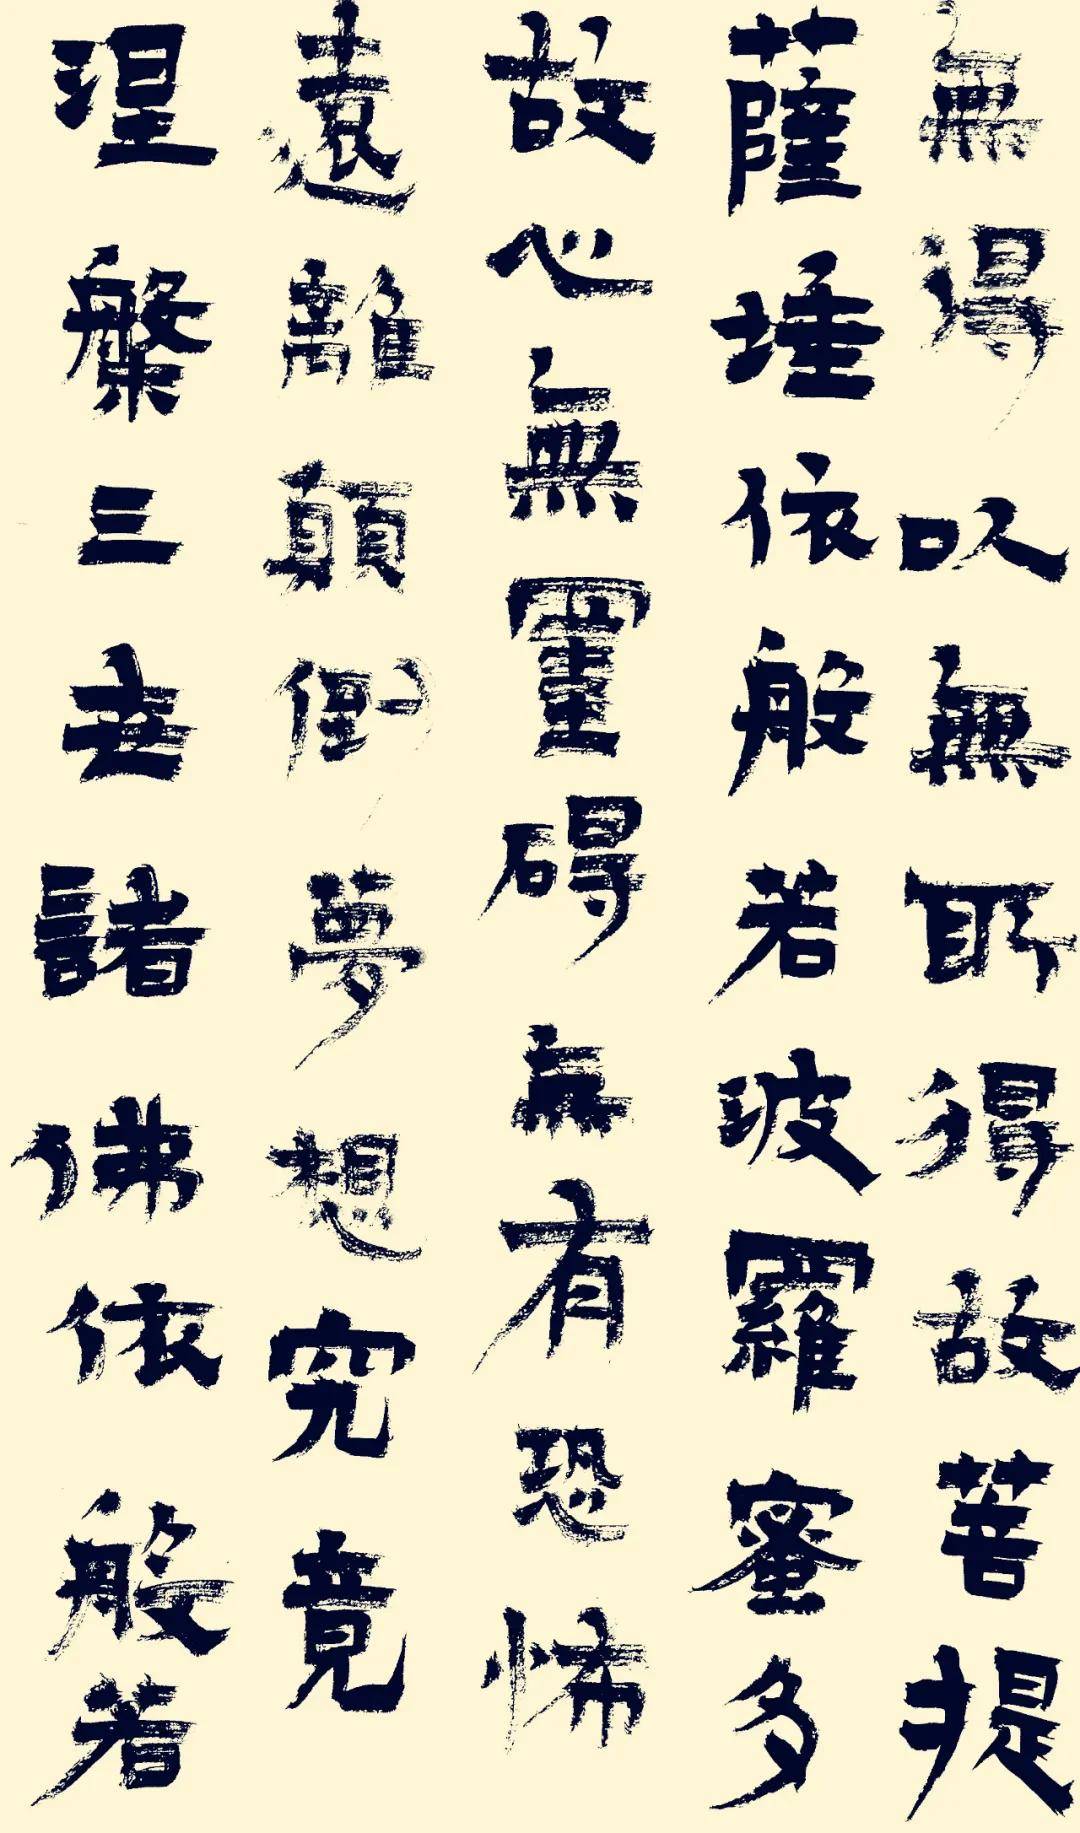 無得以無所得故菩提
薩埵依般若波羅蜜多
故心無罣碍無有恐怖
遠離顛倒夢想究竟
涅槃三世諸佛依般若